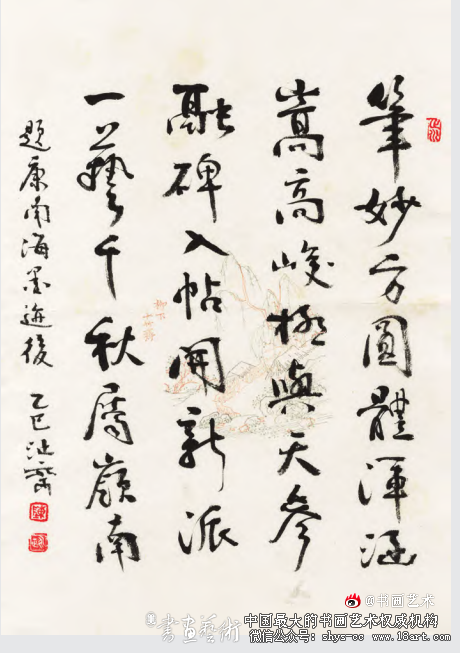 筆妙方圓體渾涵
嵩高峻極與天參
融碑入帖開新派
一藝千秋屬嶺南
題康南海墨迹後 乙巳
@书画艺术
書画艺術
中国最大的书画艺术权威机构
微信公众号: shys-cc www.18art.com